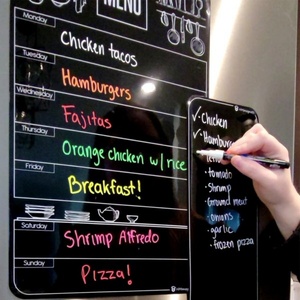 MENU
Monday
Chicken tacos
Tuesday
Hamburgers
Wednesday
Fajitas
Thursday
Orange chicken w/ rice
Friday
Breakfast!
Saturday
Shrimp Alfredo
Sunday
Pizza!
✓ Chicken
✓ Hamburg
· tomato
· Shrimp
· Ground meat
· onions
· garlic
· frozen pizza